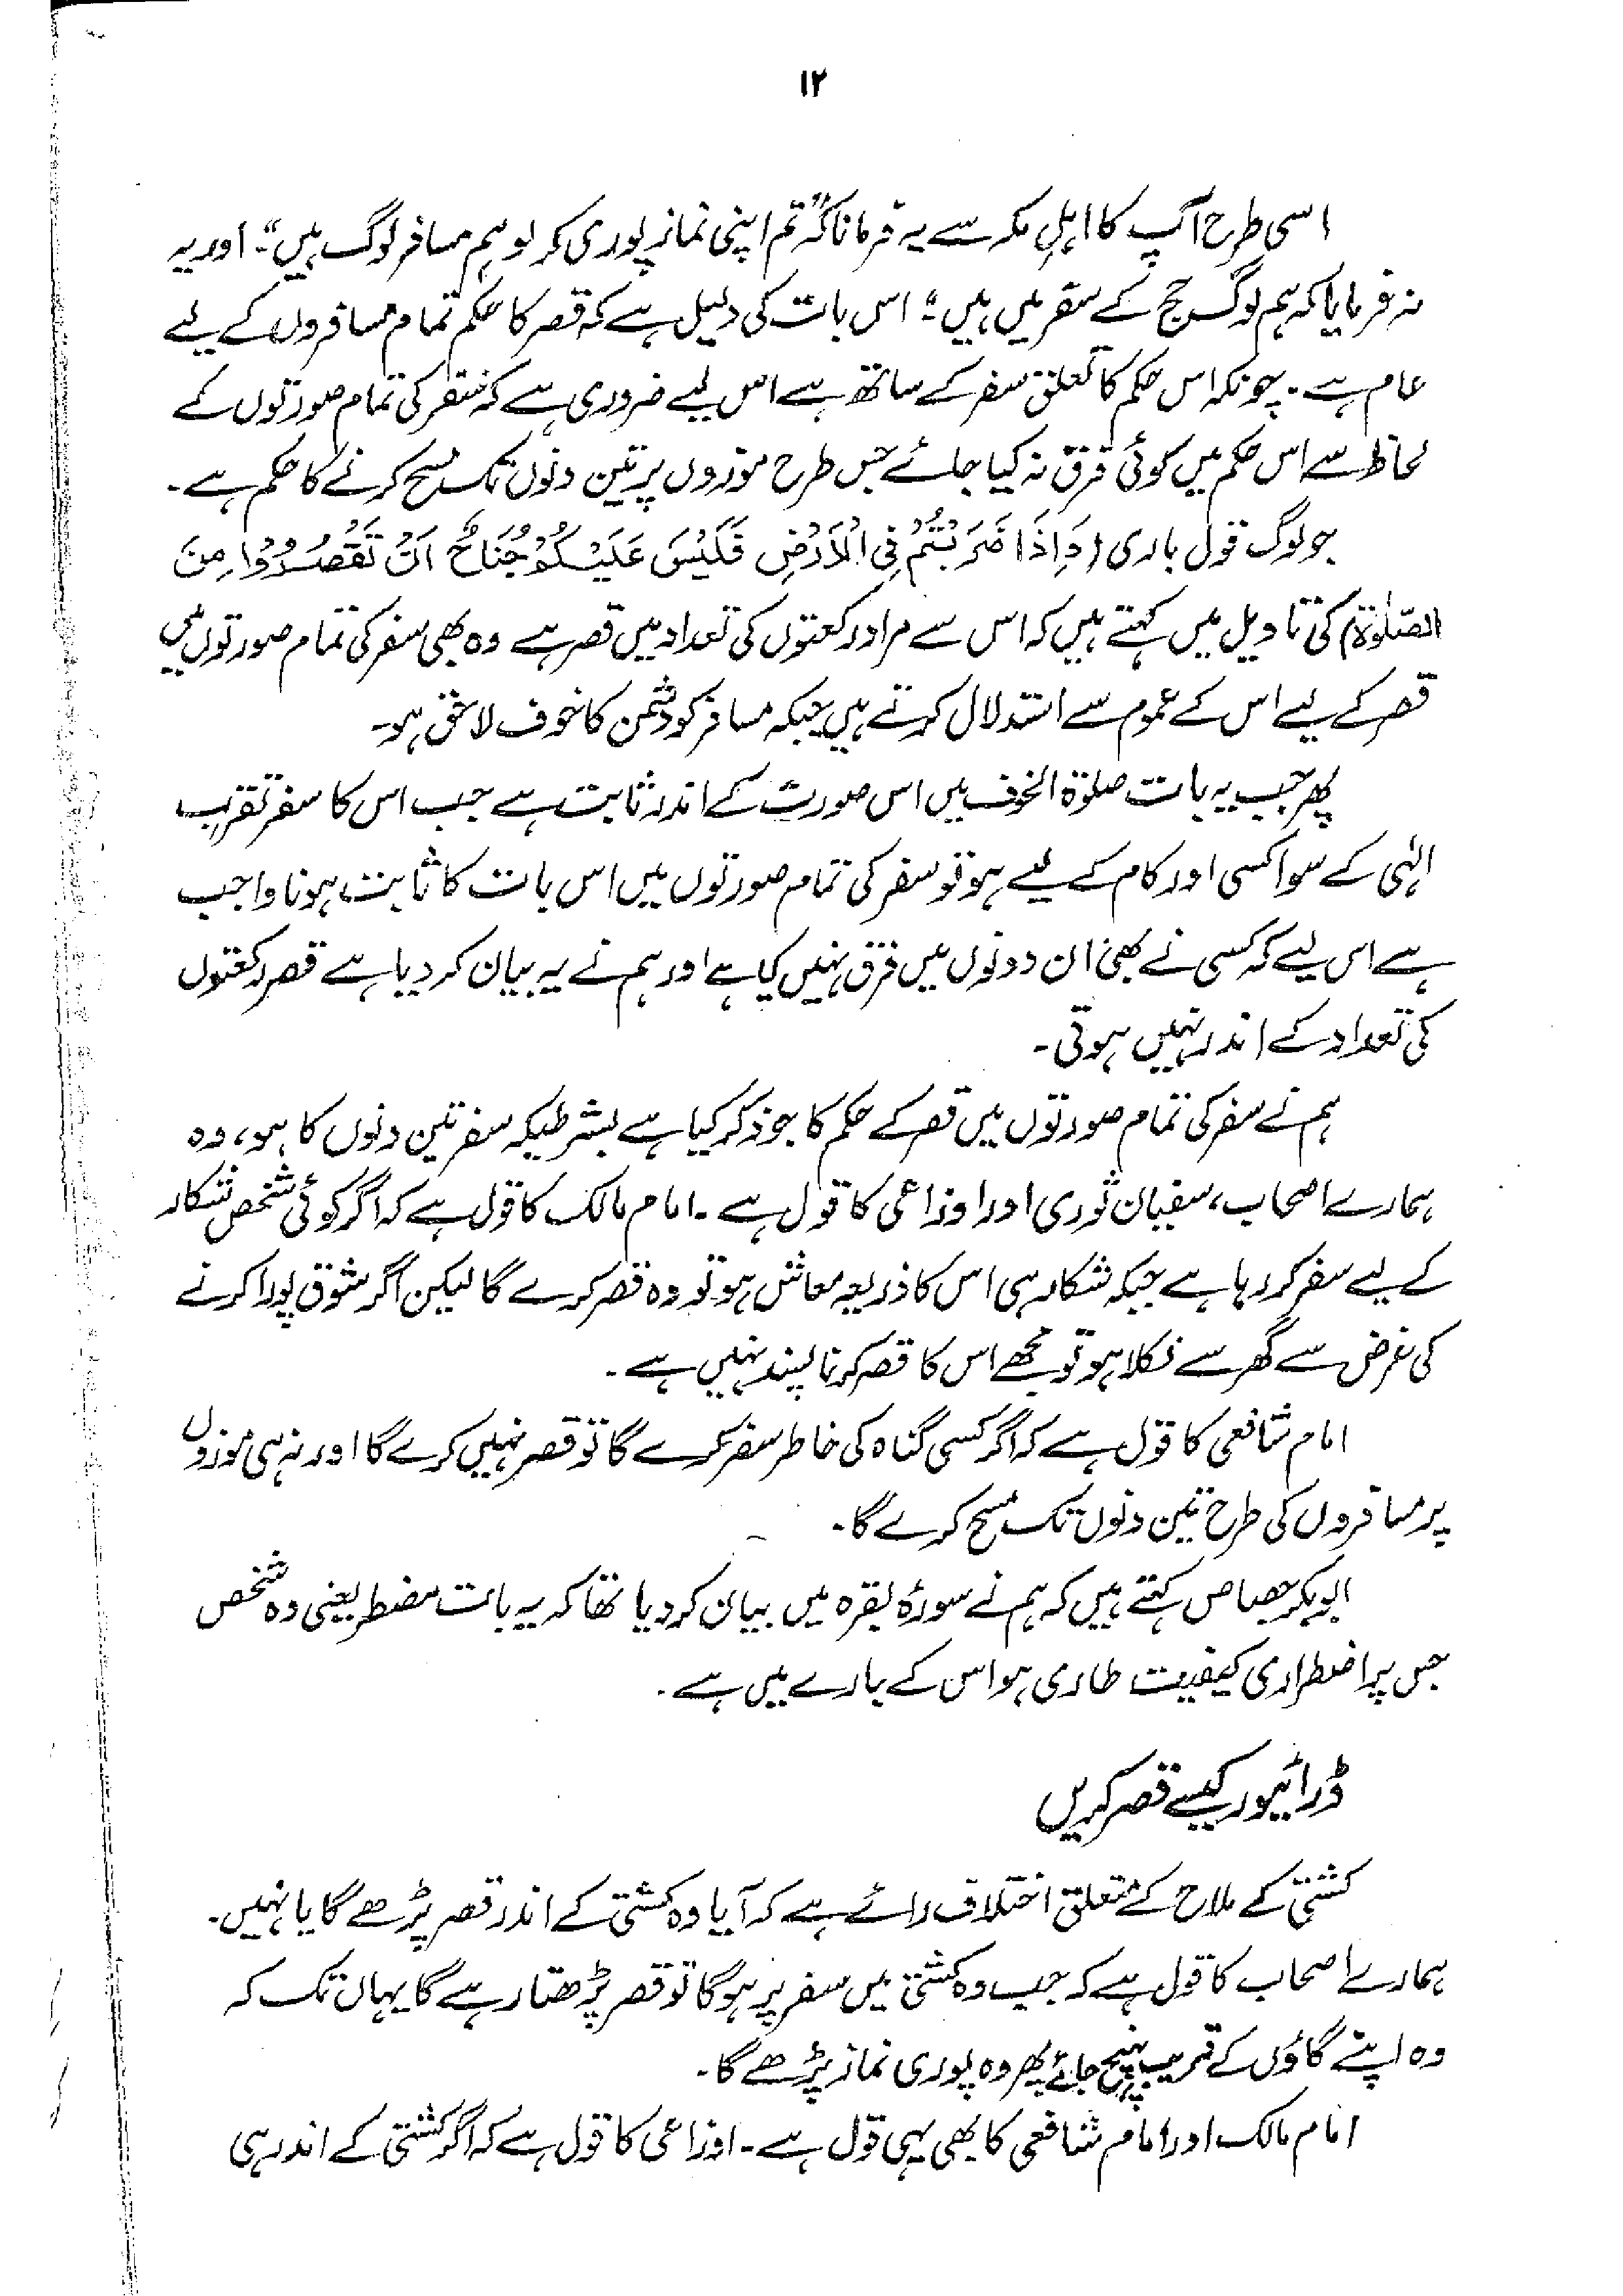 ۱۲
اسی طرح آپ کا اہلِ مکہ سے یہ فرمانا کہ "تم اپنی نماز پوری کر لو ہم مسافر لوگ ہیں"۔ اور یہ
نہ فرمایا کہ ہم لوگ حج کے سفر میں ہیں"؛ اس بات کی دلیل ہے کہ قصر کا حکم تمام مسافروں کے لیے
عام ہے۔ چونکہ اس حکم کا تعلق سفر کے ساتھ ہے اس لیے ضروری ہے کہ سفر کی تمام صورتوں کے
لحاظ سے اس حکم میں کوئی فرق نہ کیا جائے جس طرح موزوں پر تین دنوں تک مسح کرنے کا حکم ہے۔
جو لوگ قول باری (وَاِذَا ضَرَبْتُمْ فِی الْاَرْضِ فَلَیْسَ عَلَیْکُمْ جُنَاحٌ اَنْ تَقْصُرُوْا مِنَ
الصَّلٰوۃِ) کی تاویل میں کہتے ہیں کہ اس سے مراد رکعتوں کی تعداد میں قصر ہے وہ بھی سفر کی تمام صورتوں میں
قصر کے لیے اس کے عموم سے استدلال کرتے ہیں جبکہ مسافر کو دشمن کا خوف لاحق ہو۔
پھر جب یہ بات صلوٰۃ الخوف میں اس صورت کے اندر ثابت ہے جب اس کا سفر تقرب
الٰہی کے سوا کسی اور کام کے لیے ہو تو سفر کی تمام صورتوں میں اس بات کا ثابت ہونا واجب
ہے اس لیے کہ کسی نے بھی ان دونوں میں فرق نہیں کیا ہے اور ہم نے یہ بیان کر دیا ہے قصر رکعتوں
کی تعداد کے اندر نہیں ہوتی۔
ہم نے سفر کی تمام صورتوں میں قصر کے حکم کا جو ذکر کیا ہے بشرطیکہ سفر تین دنوں کا ہو، وہ
ہمارے اصحاب، سفیان ثوری اور اوزاعی کا قول ہے۔ امام مالک کا قول ہے کہ اگر کوئی شخص شکار
کے لیے سفر کر رہا ہے جبکہ شکار ہی اس کا ذریعہ معاش ہو تو وہ قصر کرے گا لیکن اگر شوق پورا کرنے
کی غرض سے گھر سے نکلا ہو تو مجھے اس کا قصر کرنا پسند نہیں ہے۔
امام شافعی کا قول ہے کہ اگر کسی گناہ کی خاطر سفر کرے گا تو قصر نہیں کرے گا اور نہ ہی موزوں
پر مسافروں کی طرح تین دنوں تک مسح کرے گا۔
ابوبکر جصاص کہتے ہیں کہ ہم نے سورۂ بقرہ میں بیان کر دیا تھا کہ یہ بات مضطر یعنی وہ شخص
جس پر اضطراری کیفیت طاری ہو اس کے بارے میں ہے۔
ڈرائیور کیسے قصر کریں
کشتی کے ملاح کے متعلق اختلاف رائے ہے کہ آیا وہ کشتی کے اندر قصر پڑھے گا یا نہیں۔
ہمارے اصحاب کا قول ہے کہ جب وہ کشتی میں سفر پر ہوگا تو قصر پڑھتا رہے گا یہاں تک کہ
وہ اپنے گاؤں کے قریب پہنچ جائے پھر وہ پوری نماز پڑھے گا۔
امام مالک اور امام شافعی کا بھی یہی قول ہے۔ اوزاعی کا قول ہے کہ اگر کشتی کے اندر ہی